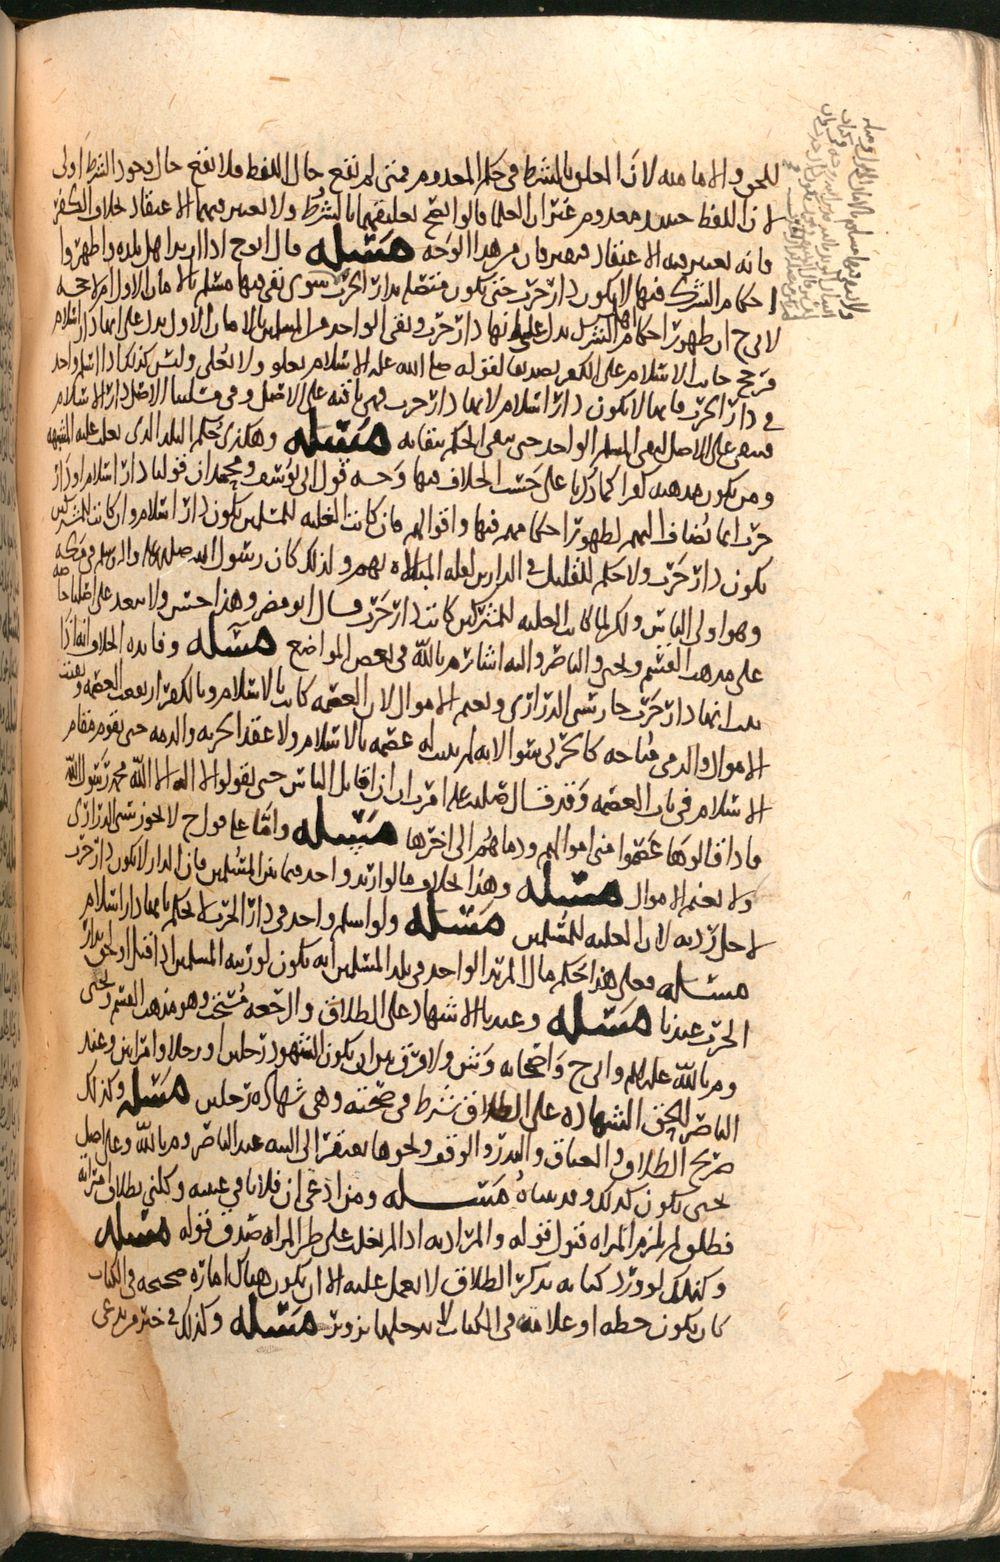 للحق والامامه لان المعلق بالشرط في حكم المعدوم فمتى لم يقع حال اللفظ فلا يقع حال وجود الشرط اولى
لان اللفظ حينئذ معدوم غير ان العلما قالوا يصح تعليقهما بالشرط ولا يعتبر فيهما الاعتقاد خلاف الكفر
فانه يعتبر فيه الاعتقاد من هذا الوجه مسئله قال ابوح اذا ارتد اهل بلده واظهروا
احكام الشرك فيها لا يكون دار حرب حتى تكون متصله بدار الحرب سوى بقى فيها مسلم بالامان الاول ام لا حجه
لابي ح ان ظهور احكام الشرك يدل على انها دار حرب وبقى الواحد من المسلمين بالامان الاول يدل على انها دار اسلام
فرجح جانب الاسلام على الكفر بصدقها لقوله صلى الله عليه الاسلام يعلو ولا يعلى وليس كذلك اذا اسلم واحد
في دار الحرب فانها لا تكون دار اسلام لانها دار حرب فهي باقيه على الاصل وفي مسلتنا الاصل دار الاسلام
فبقى على الاصل لبقى المسلم الواحد حتى يبقى الحكم ببقايه مسئله وهكذي حكم البلد الذي يغلب عليه المشبهه
ومن يكون مذهبه كفرا كما ذكرنا على حسب الخلاف فيها وجه قول ابي يوسف ومحمد ان قولنا دار اسلام او دار
حرب انما يضاف اليهم لظهور احكامهم فيها واقوالهم فان كانت الغلبه للمسلمين يكون دار اسلام وان كانت للمشركين
يكون دار حرب ولا حكم للقليل في الدارين لقله المبالاه بهم ولذلك كان رسول الله صلى الله عليه واله وسلم في مكه
وهو اولى الناس ولكن لما كانت الغلبه للمشركين كانت دار حرب قال ابو مضر وهذا حسن ولا يبعد على اصلنا خاصه
على مذهب القسم ويحيى والناصر واليه اشار م بالله في بعض المواضع مسئله وفايده الخلاف انه اذا
ثبت انها دار حرب جاز سبي الذراري ويغنم الاموال لان العصمه كانت بالاسلام وبالكفر ارتفعت العصمه وبقيت
الاموال والدمي مباحه كالحربي سوا لانه لم يثبت له عصمه بالاسلام ولا عقد الجزيه والذمه حتى يقوم مقام
الاسلام في باب العصمه وقد قال صلى الله عليه امرت ان اقاتل الناس حتى يقولوا لا اله الا الله محمد رسول الله
فاذا قالوها عصموا مني اموالهم ودماهم الى اخرها مسئله واما على قول ح لا يجوز سبي الذراري
ولا يغنم الاموال مسئله وهذا بخلاف ما لو ارتد واحد فيما بين المسلمين فان الدار لا تكون دار حرب
لاجل ردته لان الغلبه للمسلمين مسئله ولو اسلم واحد في دار الحرب لا يحكم بانها دار اسلام
مسئله فعلى هذا حكم مال المرتد الواحد في بلد المسلمين انه يكون لورثته المسلمين اذا قتل او لحق بدار
الحرب عندنا مسئله وعندنا الاشهاد على الطلاق والرجعه مستحب وهو مذهب القسم ويحيى
وم بالله عليهم وابي ح واصحابه وش ولا فرق بين ان يكون الشهود رجلين او رجلا وامراتين وعند
الناصر للحق الشهاده على الطلاق شرط في صحته وهي شهاده رجلين مسئله وكذلك
صريح الطلاق والعتاق والنذر والوقف ونحوها يفتقر الى النيه عند الناصر وم بالله وعلى اصل
يحيى يكون كذلك وقد بيناه مسئله ومن ادعى ان فلانا في غيبته وكلني بطلاق امراته
فطلق لم يلزم المراه قبول قوله والمراد به اذا لم يغلب على ظن المراه صدق قوله مسئله
وكذلك لو ورد كتابه بذكر الطلاق لا يعمل عليه الا ان يكون هناك اماره صحيحه في الكتاب
كان يكون خطه او علامه في الكتاب لا يدخلها تزوير مسئله وكذلك في خبر من يدعى